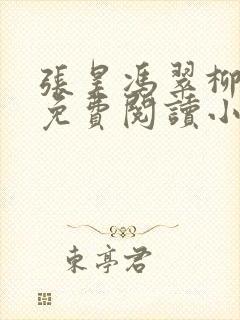 張是馮翠柳
免費閱讀小
東亭君